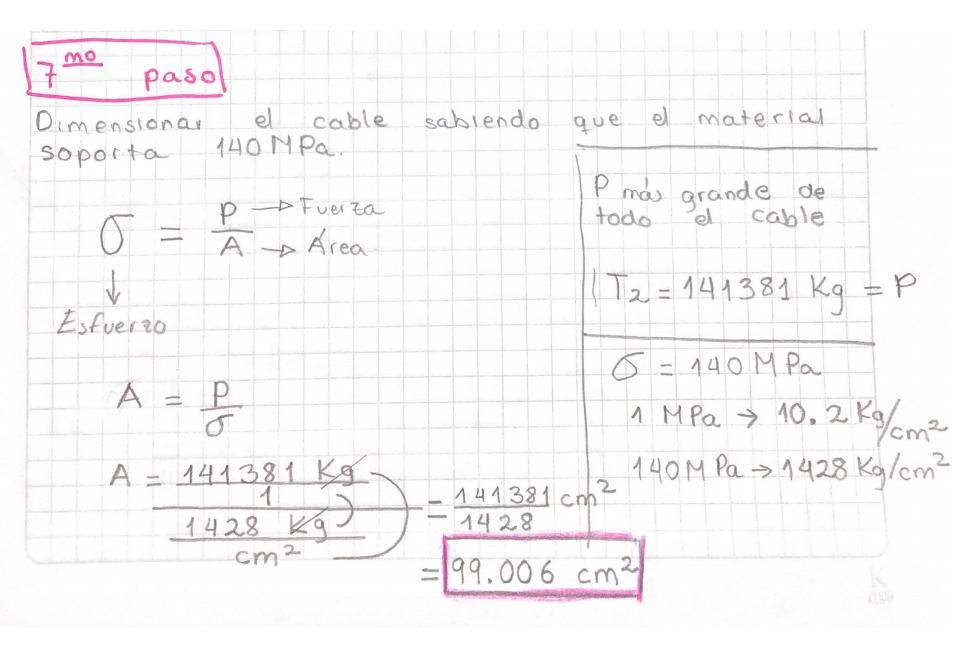 7mo paso
Dimensionar el cable sabiendo que el material
soporta 140 MPa.
σ = P/A
P → Fuerza
A → Área
↓
Esfuerzo
A = P/σ
A = 141381 Kg
1
1428 Kg
cm²
= 141381 cm²
1428
= 99.006 cm²
P más grande de
todo el cable
T2 = 141381 Kg = P
σ = 140 MPa
1 MPa → 10.2 Kg/cm²
140 MPa → 1428 Kg/cm²